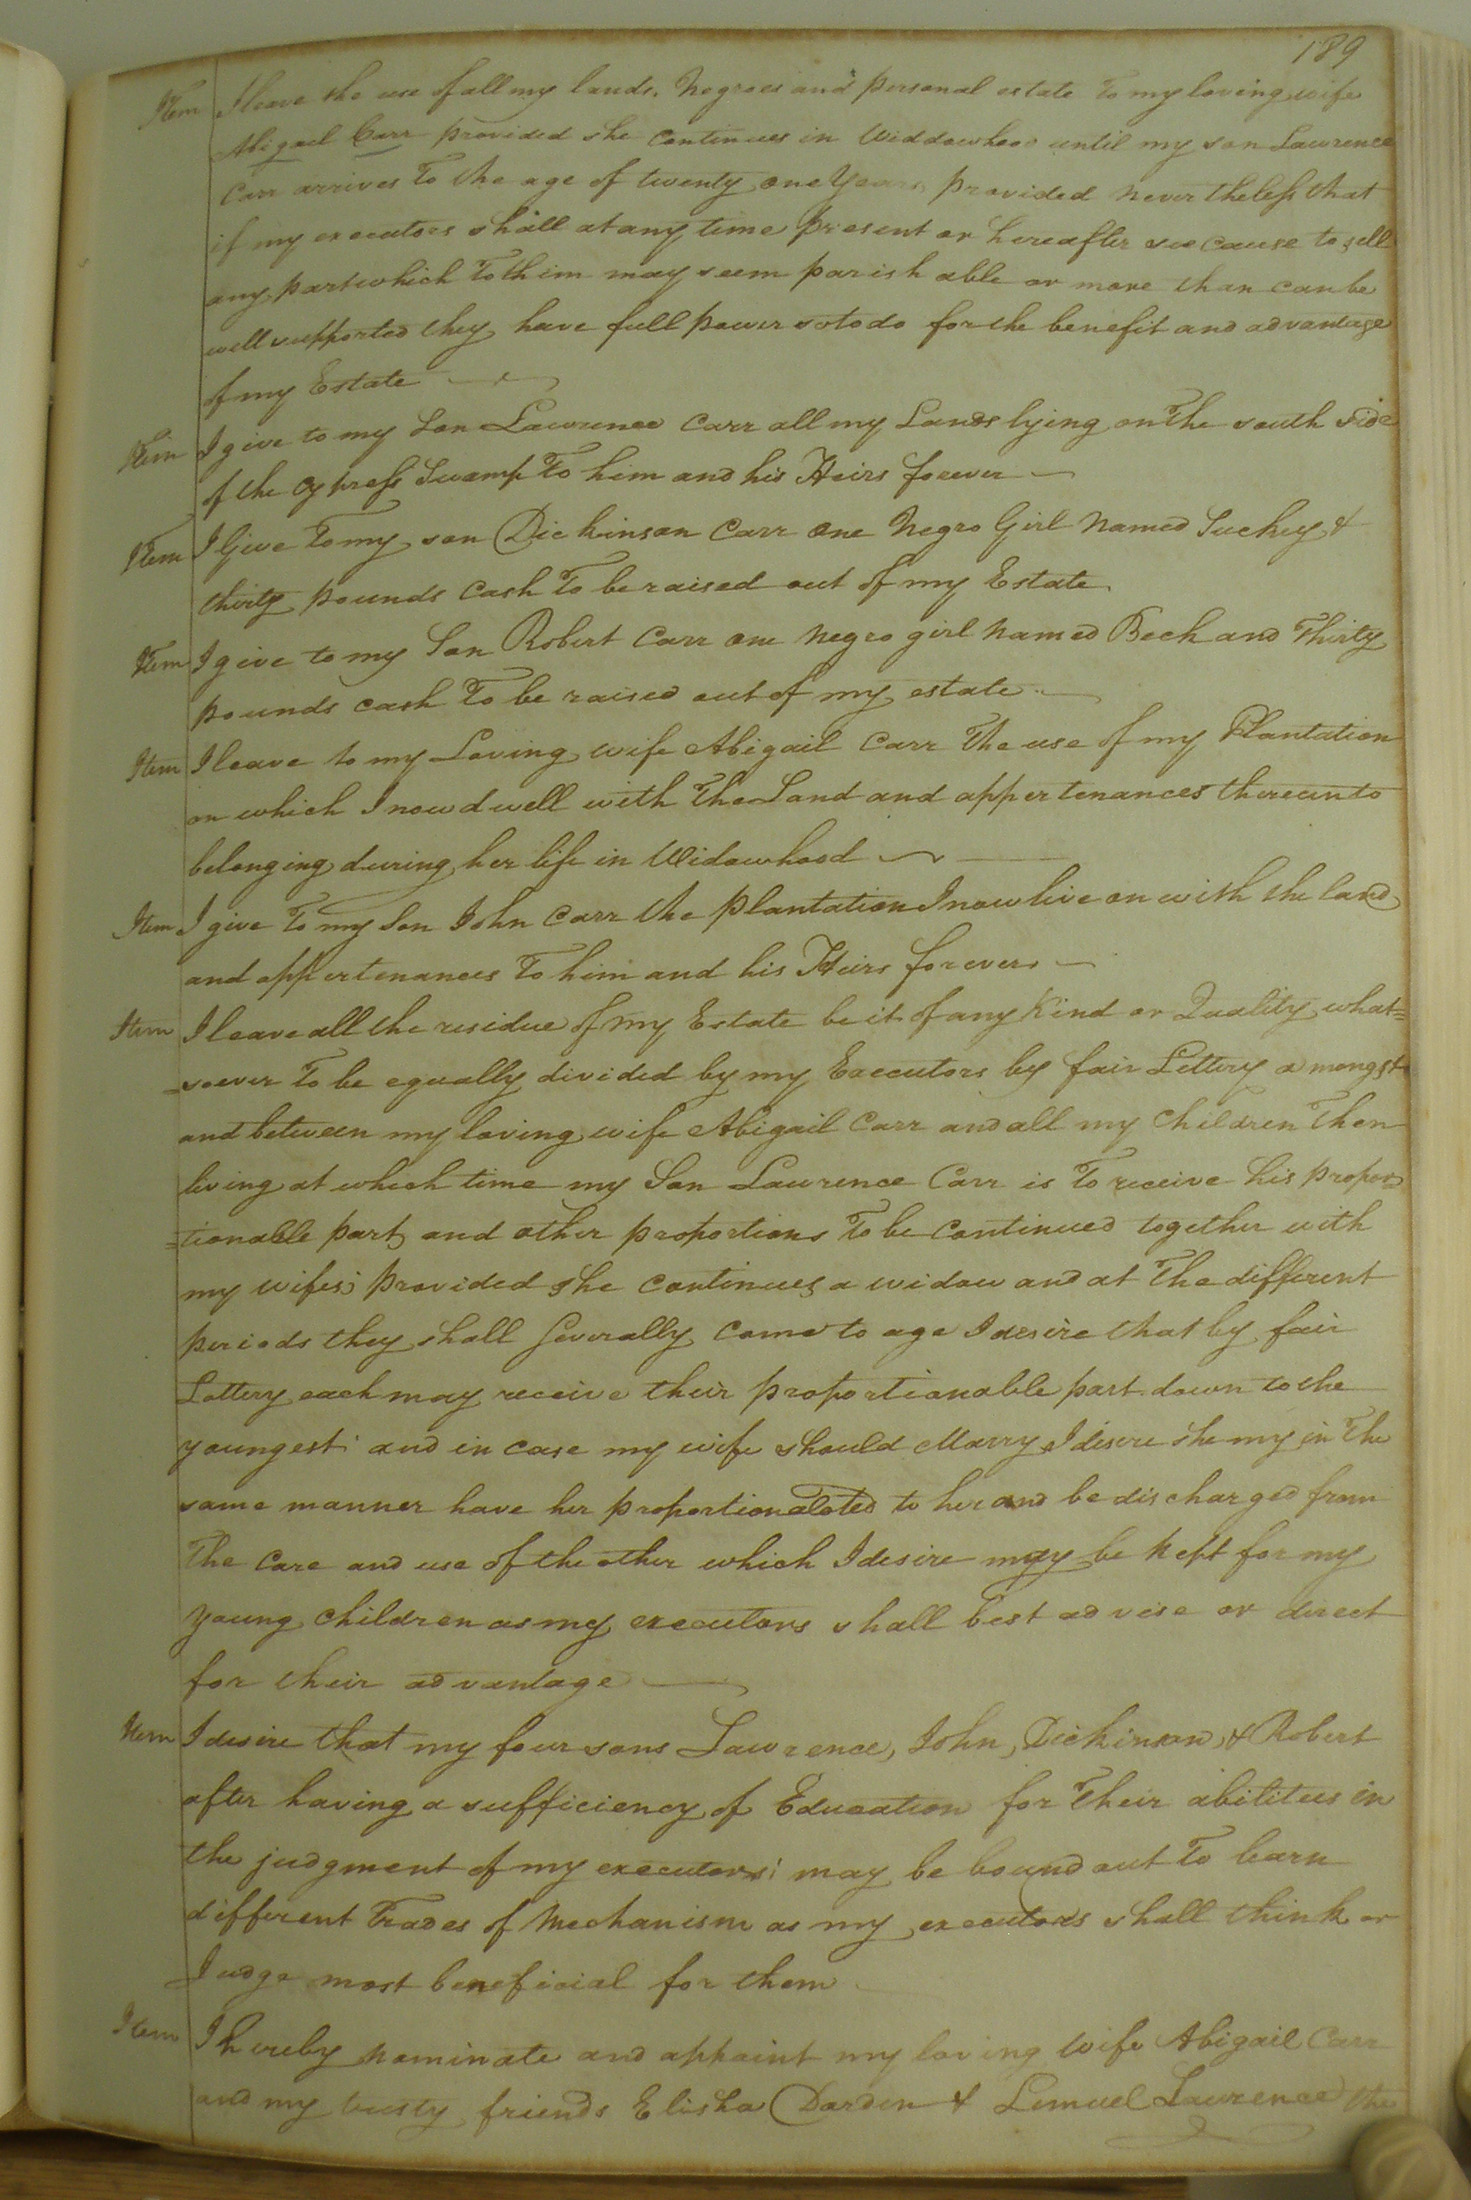 189
Item I leave the use of all my lands, Negroes and personal estate to my loving wife
Abigail Carr provided she continues in Widdowhood until my son Lawrence
Carr arrives To the age of twenty one Years provided never theless that
if my executors shall at any time present or hereafter see cause to sell
any part which To thim may seem parish able or more than can be
well supported they have full power so to do for the benefit and advantage
of my Estate
Item I give to my Son Lawrence Carr all my Lands lying on The south side
of the Cypress Swamp To him and his Heirs forever
Item I Give To my son Dickinson Carr one Negro Girl Named Suckey &
thirty pounds Cash To be raised out of my Estate
Item I give to my Son Robert Carr one Negro girl Named Beck and Thirty
pounds cash To be raised out of my estate
Item I leave to my Loving wife Abigail Carr The use of my Plantation
on which I now dwell with The Land and appertenances thereunto
belonging during her life in Widowhood
Item I give To my Son John Carr the Plantation I now live on with the land
and appertenances To him and his Heirs forever
Item I leave all the residue of my Estate be it of any Kind or Quality what=
=soever To be equally divided by my Executors by fair Lettery amongst
and between my loving wife Abigail Carr and all my Children Then
living at which time my Son Lawrence Carr is To receive his propor=
=tionable part and other proportions To be Continued together with
my wifes; provided she continues a widow and at The different
periods they shall Severally Come to age I desire that by fair
Lottery each may receive their proportionable part down to the
youngest: and in case my wife should Marry I disire she my in The
same manner have her proportion aloted to her and be discharged from
The Care and use of the other which I desire may be kept for my
young children as my executors shall best advise or direct
for their advantage
Item I desire that my four sons Lawrence, John, Dickinson, & Robert
after having a sufficiency of Education for Their abilities in
the judgment of my executors; may be bound out To learn
different Trades of Mechanism as my executors shall think or
Judge most beneficial for them
Item I hereby nominate and appoint my loving wife Abigail Carr
and my trusty friends Elisha Darden & Lemuel Lawrence the